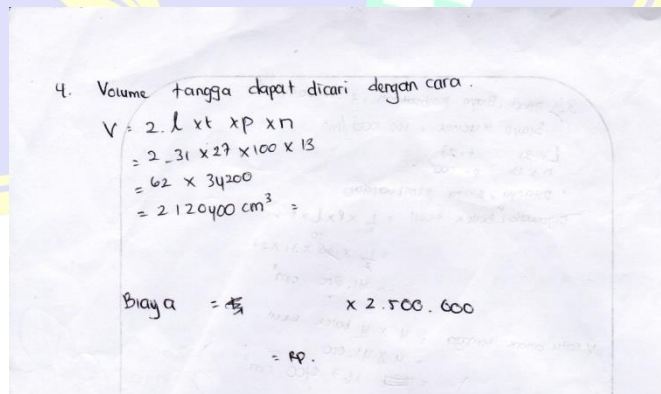 4. Volume tangga dapat dicari dengan cara.
V = 2. l x t x p x n
= 2 . 31 x 27 x 100 x 13
= 62 x 34200
= 2120400 cm³ =
Biaya = x 2.500.000
= RP.